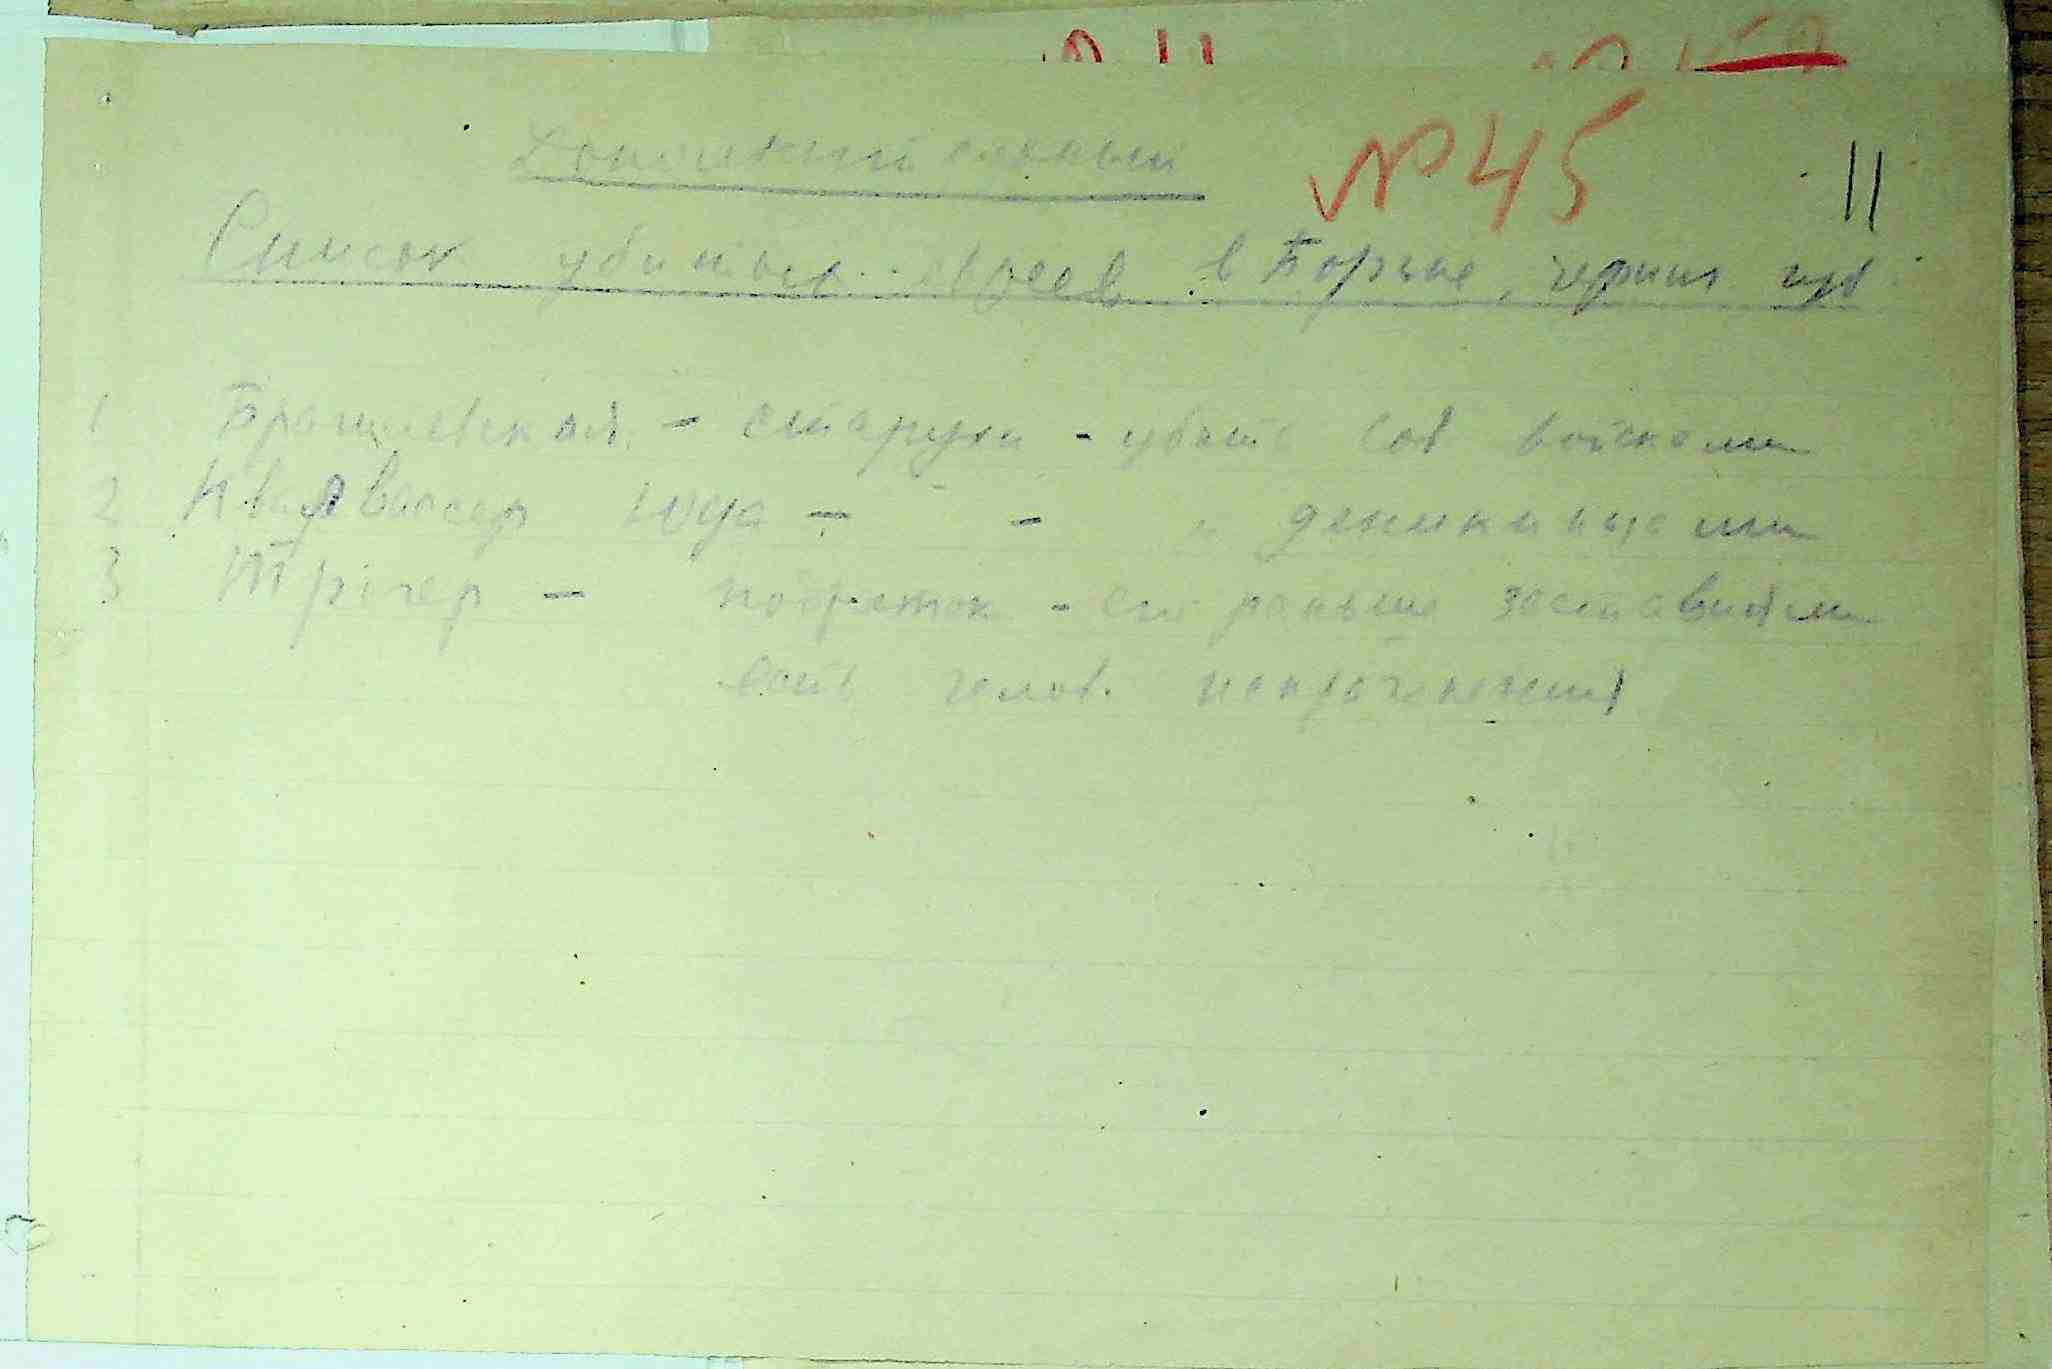 № 45
11
Список убитых евреев в Борзне, черниг губ
1 Брагилевская - старуха - убита сов войсками
2 Квасвассер Юда - - " деникинцами
3 Тригер - подросток - его раньше заставили
есть челов.